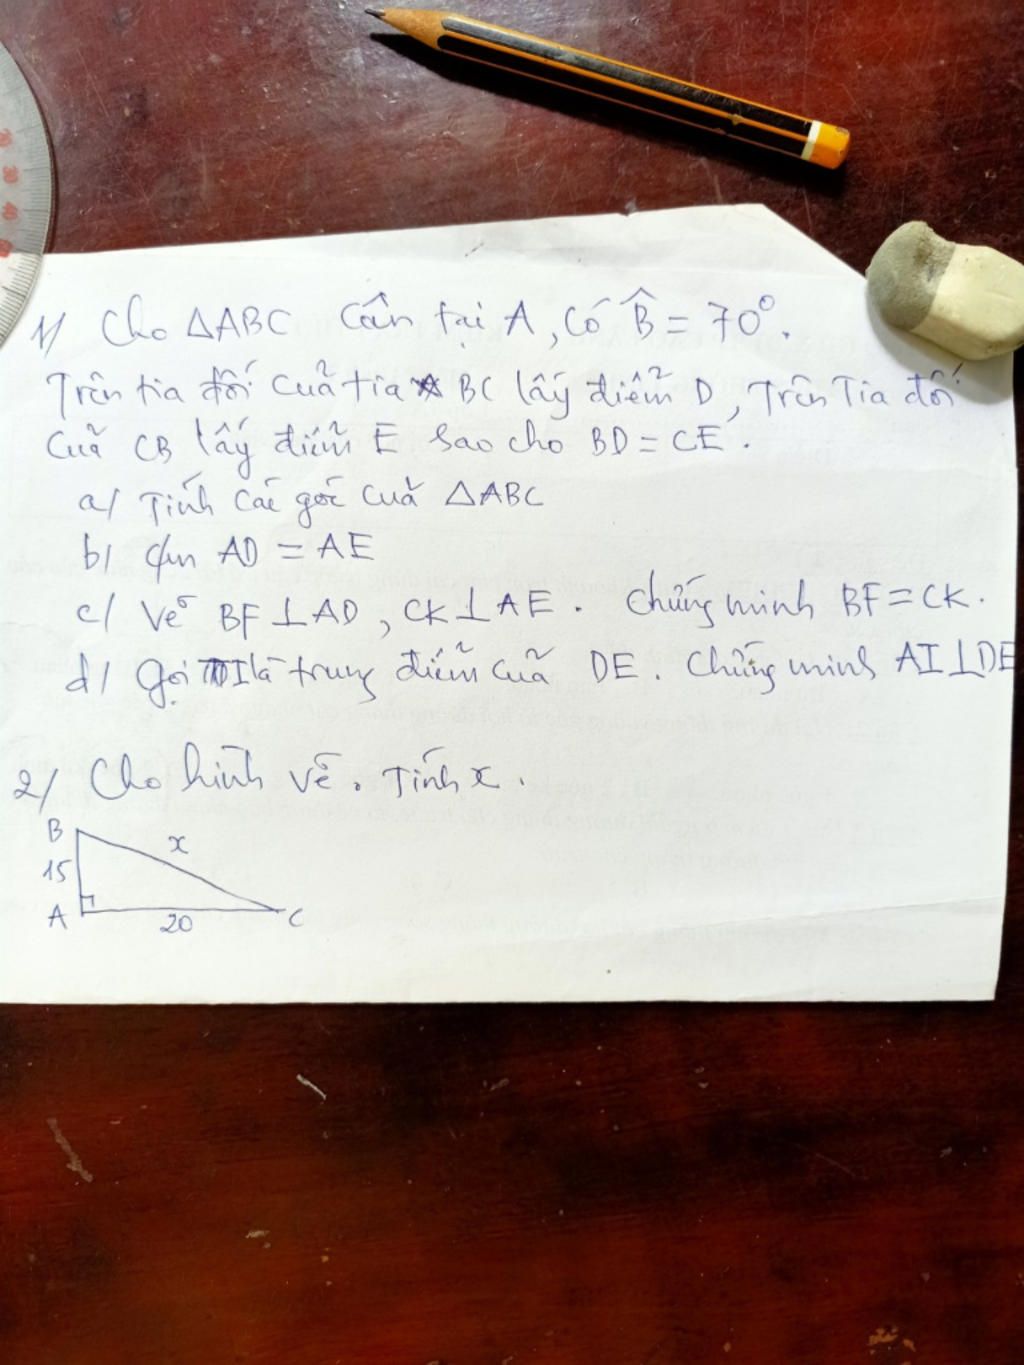 1/ Cho △ABC cân tại A, có B̂ = 70°.
Trên tia đối của tia BC lấy điểm D, Trên Tia đối
của CB lấy điểm E sao cho BD = CE.
a/ Tính các góc của △ABC
b/ c/m AD = AE
c/ Vẽ BF⊥AD, CK⊥AE. Chứng minh BF = CK.
d/ Gọi I là trung điểm của DE. Chứng minh AI⊥DE
2/ Cho hình vẽ. Tính x.
B
x
15
A
20
C